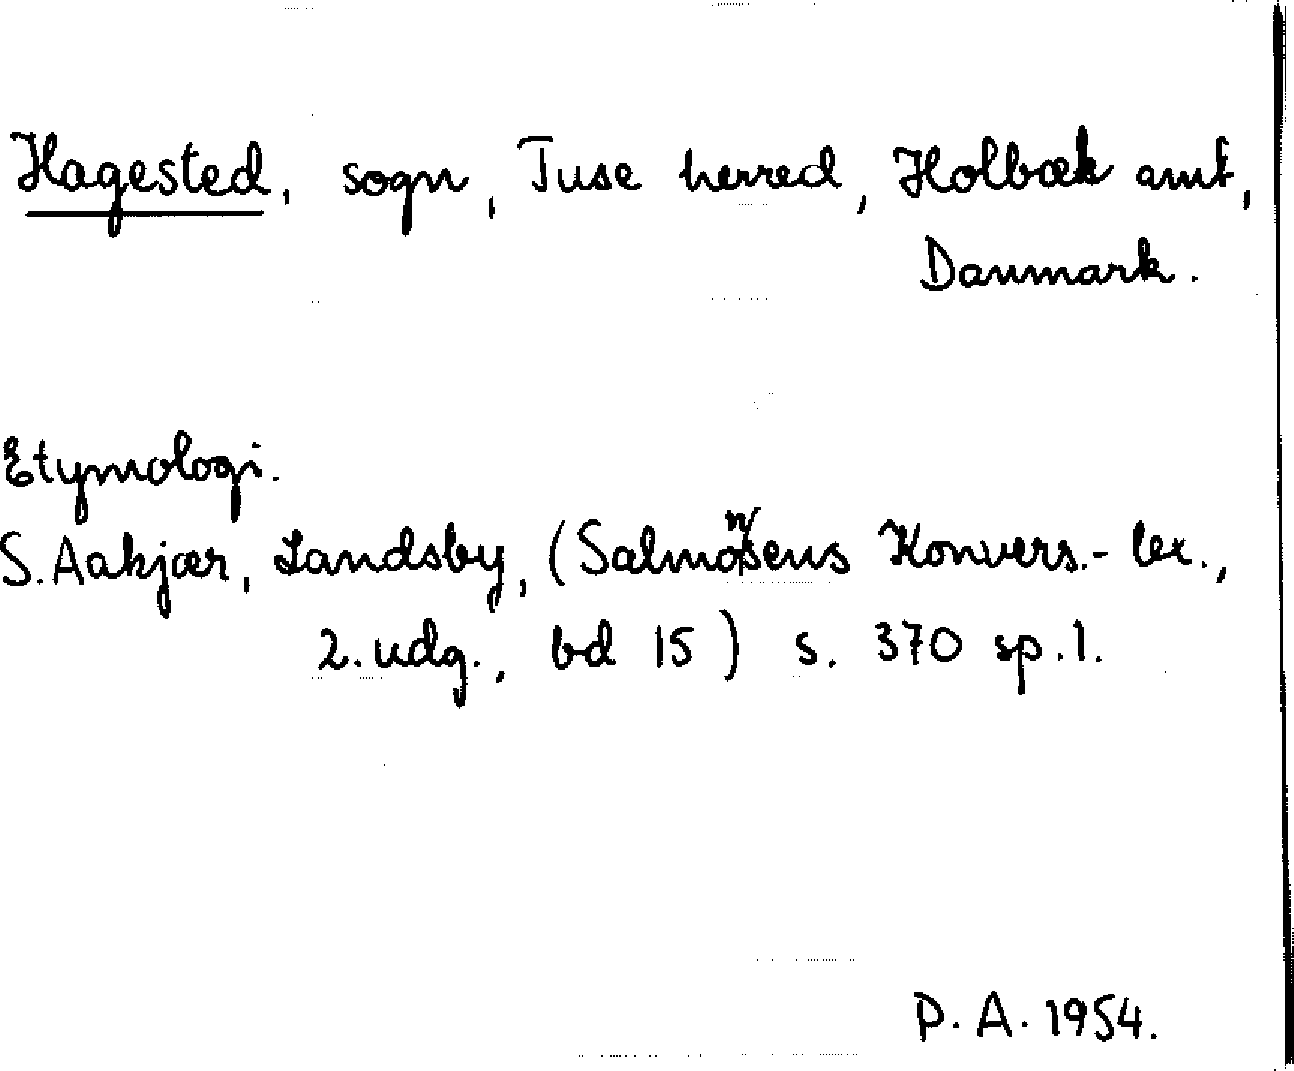 Hagested, sogn, Tuse herred, Holbæk amt,
Danmark.
Etymologi.
S. Aakjær, Landsby, (Salmonsens Konvers.-lex.,
2. udg., bd 15) s. 370 sp. 1.
P. A. 1954.